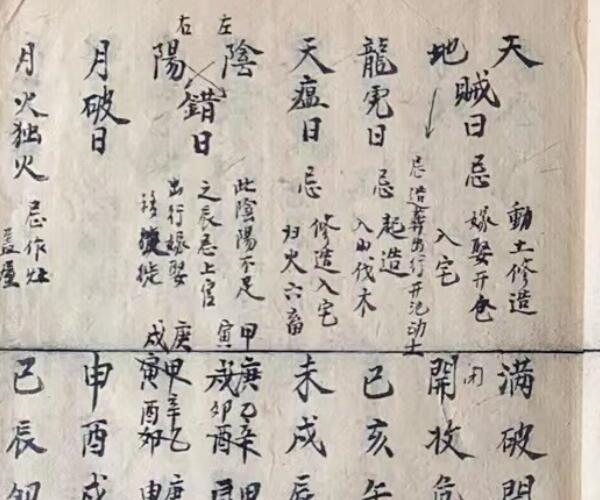 天
地
賊日
忌
動土修造
嫁娶开仓
入宅
忌造葬出行开池动土
满破開
闭
開收危
龍虎日
忌
起造
入山伐木
巳亥午
天瘟日
忌
修造入宅
归火六畜
未戌辰
左
右
陰
陽
錯日
此陰陽不足
之辰忌上官
出行嫁娶
甲庚乙辛
庚甲辛乙
月破日
申酉戌
月火独火
忌作灶
盖屋
巳辰卯